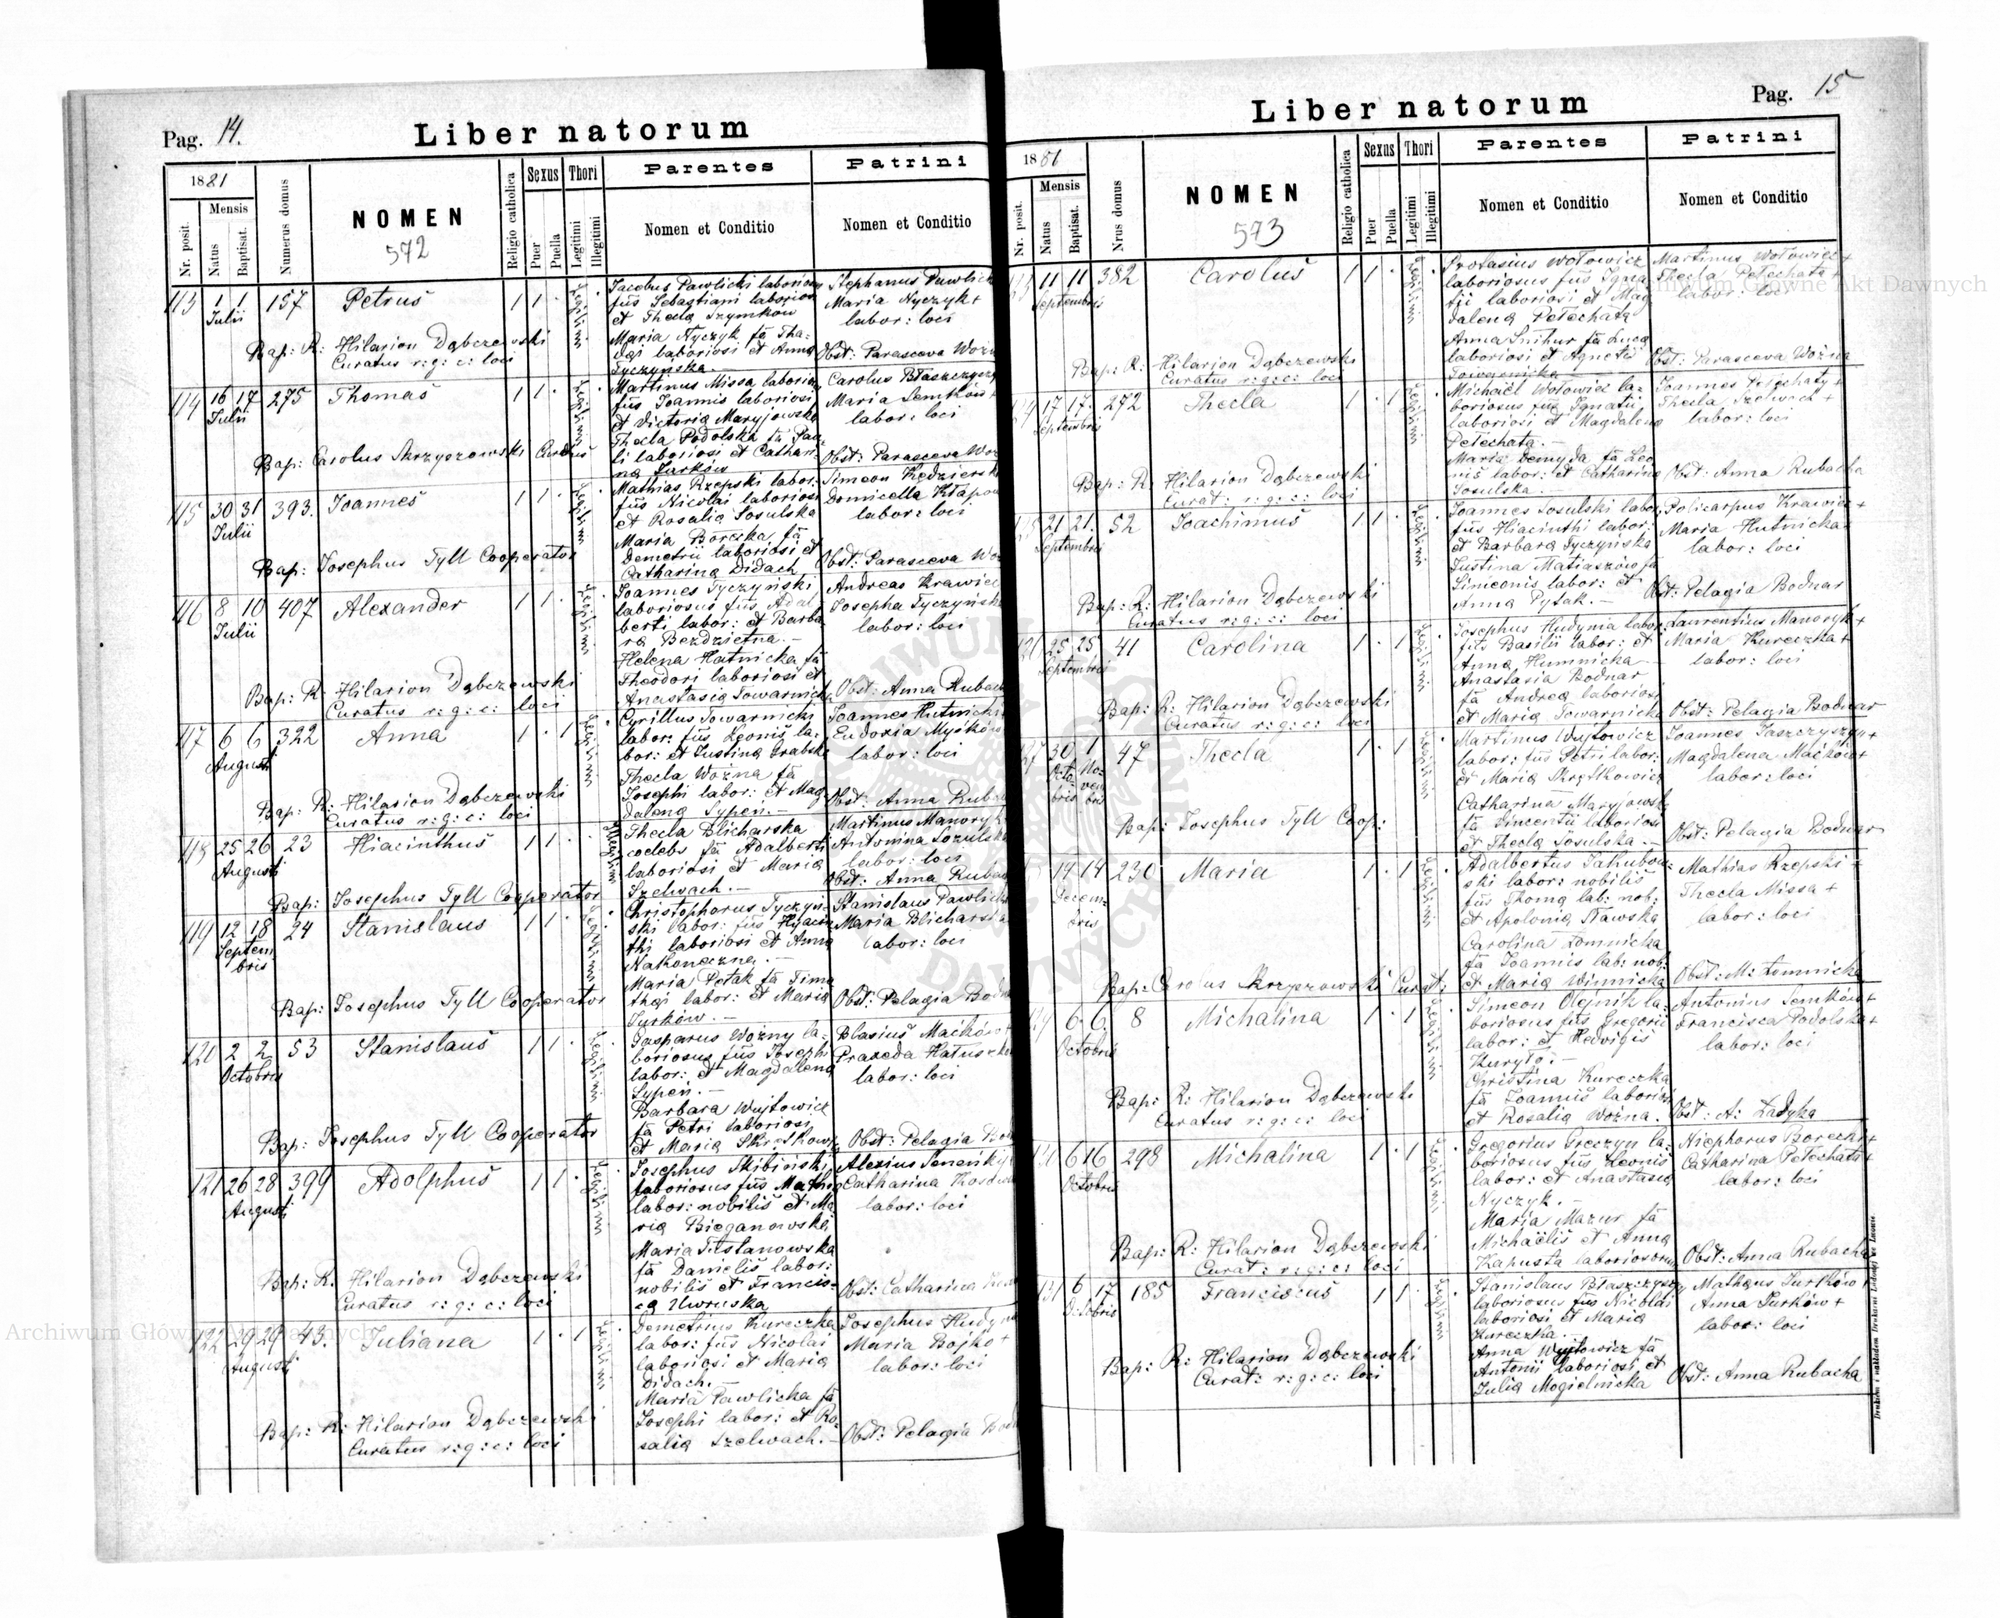 Pag. 14.
Liber natorum
1881
Nr. posit.
Mensis
Natus
Baptisat.
Numerus domus
NOMEN
572
Religio catholica
Sexus
Puer
Puella
Thori
Legitimi
Illegitimi
Parentes
Nomen et Conditio
Patrini
Nomen et Conditio
113 1 1 157 Petrus 1 1 ·
Julii
Jacobus Pawlicki laboriosus
fius Sebastiani laboriosi
et Thecla Szymków
Maria Nyczyk fa Tha-
dai laboriosi et Anna
Tyczyńska.—
Stephanus Pawlicki
Maria Nyczyk +
labor: loci
Bap: R: Hilarion Dąbczewski
Curatus r: g: c: loci
Obst: Parasceva Woźna
114 16 17 275 Thomas 1 1 ·
Julii
Martinus Missa laborio
fius Joannis laboriosi
et Victoria Maryjowska
Thecla Podolska fa Pau-
li laboriosi et Cathari-
na Turków
Carolus Błaszczyszyn
Maria Semków +
labor: loci
Bap: Carolus Skrzyszowski Curatus
Obst: Parasceva Woź
115 30 31 393. Joannes 1 1 ·
Julii
Mathias Rzepski labor:
fius Nicolai laboriosi
et Rosalia Sosulska
Maria Borecka fa
Demetrii laboriosi et
Catharina Didach
Simeon Kędzierski
Domicella Kłapow
labor: loci
Bap: Josephus Tyll Cooperator
Obst: Parasceva Woź
116 8 10 407 Alexander 1 1 ·
Julii
Joannes Tyczyński
laboriosus fius Adal-
berti labor: et Barba-
ra Bezdzietna.—
Helena Hatnicka fa
Theodori laboriosi et
Anastasia Towarnicka
Andreas Krawiec
Josepha Tyczyńska
labor: loci
Bap: R: Hilarion Dąbczewski
Curatus r: g: c: loci
Obst: Anna Rubach
117 6 6 322 Anna 1 · 1
Augusti
Cyrillus Towarnicki
labor: fius Leonis la-
bor: et Justina Grabska
Thecla Woźna fa
Josephi labor: et Mag-
dalena Sypeń.—
Joannes Hutnicki
Eudoxia Myśków
labor: loci
Bap: R: Hilarion Dąbczewski
Curatus r: g: c: loci
Obst: Anna Rubach
118 25 26 23 Hiacinthus 1 1 ·
Augusti
Thecla Blicharska
coelebs fa Adalberti
laboriosi et Maria
Szelwach.—
Martinus Manoryk
Antonina Sozulska
labor: loci
Obst: Anna Rubach
Bap: Josephus Tyll Cooperator
119 12 18 24 Stanislaus 1 1 ·
Septem
bris
Christophorus Tyczyń-
ski labor: fius Hyacin-
thi laboriosi et Anna
Nakoneczna.—
Maria Petak fa Timo
thei labor: et Maria
Turków.—
Stanislaus Pawlicki
Maria Blicharska
labor: loci
Bap: Josephus Tyll Cooperator
Obst: Pelagia Bodn
120 2 2 53 Stanislaus 1 1 ·
Octobris
Gasparus Woźny la-
boriosus fius Josephi
labor: et Magdalena
Sypeń.—
Barbara Wujtowicz
fa Petri laboriosi
et Maria Skrętkowicz
Blasius Maćków +
Praxeda Hatuszka
labor: loci
Bap: Josephus Tyll Cooperator
Obst: Pelagia Bod
121 26 28 399 Adolphus 1 1 ·
Augusti
Josephus Skibiński
laboriosus fius Mathia
labor: nobilis et Ma-
ria Bieganowska
Maria Tustanowska
fa Danielis labor:
nobilis et Francis-
ca Uwruska
Alexius Seneńki
Catharina
labor: loci
Bap: R: Hilarion Dąbczewski
Curatus r: g: c: loci
Obst: Catharina
122 29 29 43. Juliana 1 · 1
Augusti
Demetrius Kureczka
labor: fius Nicolai
laboriosi et Maria
Didach.—
Maria Pawlicka fa
Josephi labor: et Ro-
salia Szelwach.—
Josephus Hudyma
Maria Bojko +
labor: loci
Bap: R: Hilarion Dąbczewski
Curatus r: g: c: loci
Obst: Pelagia Bod
Pag. 15
Liber natorum
1881
Nr. posit.
Mensis
Natus
Baptisat.
Nrus domus
NOMEN
573
Religio catholica
Sexus
Puer
Puella
Thori
Legitimi
Illegitimi
Parentes
Nomen et Conditio
Patrini
Nomen et Conditio
11 11 382 Carolus 1 1 ·
Septembris
Protasius Wołowiec
laboriosus fius Igna-
tii laboriosi et Mag
dalena Petechata
Anna Snihur fa Luca
laboriosi et Agneta
Towarnicka
Martinus Wołowiec +
Thecla Petechata +
labor: loci
Bap: R: Hilarion Dąbczewski
Curatus r: g: c: loci
Obst: Parasceva Woźna
17 17. 272 Thecla 1 · 1
Septembris
Michaël Wołowiec la-
boriosus fius Ignatii
laboriosi et Magdalena
Petechata.—
Maria Demyda fa Leo
nis labor: et Catharina
Sosulska.
Joannes Petechaty +
Thecla Szelwach +
labor: loci
Bap: R: Hilarion Dąbczewski
Curat: r: g: c: loci
Obst: Anna Rubacha
21 21. 52 Joachimus 1 1 ·
Septembris
Joannes Sosulski labor:
fius Hiacinthi labor:
et Barbara Tyczyńska
Justina Matiaszów fa
Simeonis labor: et
Anna Pytak.—
Policarpus Krawiec +
Maria Hutnicka +
labor: loci
Bap: R: Hilarion Dąbczewski
Curatus r: g: c: loci
Obst: Pelagia Bodnar
25 25 41 Carolina 1 · 1
Septembris
Josephus Hudyma labor:
fius Basilii labor: et
Anna Humnicka
Anastasia Bodnar
fa Andrea laboriosi
et Maria Towarnicka
Laurentius Manoryk +
Maria Kureczka +
labor: loci
Bap: R: Hilarion Dąbczewski
Curatus r: g: c: loci
Obst: Pelagia Bodnar
30 1 47 Thecla 1 · 1
Octo No-
bris vem
bris
Martinus Wujtowicz
labor: fius Petri labor:
et Maria Skrętkowicz
Catharina Maryjowsk
fa Vincentii laboriosi
et Thecla Sosulska.—
Joannes Jaszczyszyn +
Magdalena Maćków +
labor: loci
Bap: Josephus Tyll Coop:
Obst: Pelagia Bodnar
14 14 230 Maria 1 · 1
Decem-
bris
Adalbertus Jakubow-
ski labor: nobilis
fius Thoma lab: nob:
et Apolonia Nawska
Carolina Łomnicka
fa Joannis lab: nob:
et Maria Winnicka
Mathias Rzepski +
Thecla Missa +
labor: loci
Bap: Carolus Skrzyszowski Curat:
Obst: M: Łomnicka
6 6 8 Michalina 1 · 1
Octobris
Simeon Olejnik la-
boriosus fius Gregorii
labor: et Hedvigis
Kuryło.—
Christina Kureczka
fa Joannis laboriosi
et Rosalia Woźna.
Antonius Semków +
Francisca Podolska +
labor: loci
Bap: R: Hilarion Dąbczewski
Curatus r: g: c: loci
Obst: A: Ładyka
6 16 298 Michalina 1 · 1
Octobris
Gregorius Greczyn la-
boriosus fius Leonis
labor: et Anastasia
Nyczyk.—
Maria Mazur fa
Michaëlis et Anna
Kapusta laboriosorum
Nicephorus Borecki +
Catharina Petechata +
labor: loci
Bap: R: Hilarion Dąbczewski
Curat: r: g: c: loci
Obst: Anna Rubacha
131 6 17 185 Franciscus 1 1 ·
Octobris
Stanislaus Błaszczyszyn
laboriosus fius Nicolai
laboriosi et Maria
Kureczka.—
Anna Wujtowicz fa
Antonii laboriosi et
Julia Mogielnicka
Mathaus Turków
Anna Turków +
labor: loci
Bap: R: Hilarion Dąbczewski
Curat: r: g: c: loci
Obst: Anna Rubacha
Archiwum Główne Akt Dawnych
Archiwum Główne Akt Dawnych